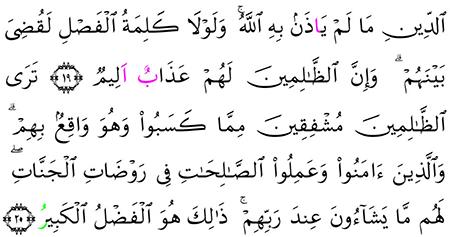 ٱلدِّينِ مَا لَمْ يَاذَنۢ بِهِ ٱللَّهُ ۚ وَلَوْلَا كَلِمَةُ ٱلْفَصْلِ لَقُضِىَ
بَيْنَهُمْ ۗ وَإِنَّ ٱلظَّٰلِمِينَ لَهُمْ عَذَابٌ اَلِيمٌ ﴿١٩﴾ تَرَى
ٱلظَّٰلِمِينَ مُشْفِقِينَ مِمَّا كَسَبُوا۟ وَهُوَ وَاقِعٌۢ بِهِمْ ۗ
وَٱلَّذِينَ ءَامَنُوا۟ وَعَمِلُوا۟ ٱلصَّٰلِحَٰتِ فِى رَوْضَاتِ ٱلْجَنَّاتِ ۖ
لَهُم مَّا يَشَآءُونَ عِندَ رَبِّهِمْ ۚ ذَٰلِكَ هُوَ ٱلْفَضْلُ ٱلْكَبِيرُ ﴿٢٠﴾